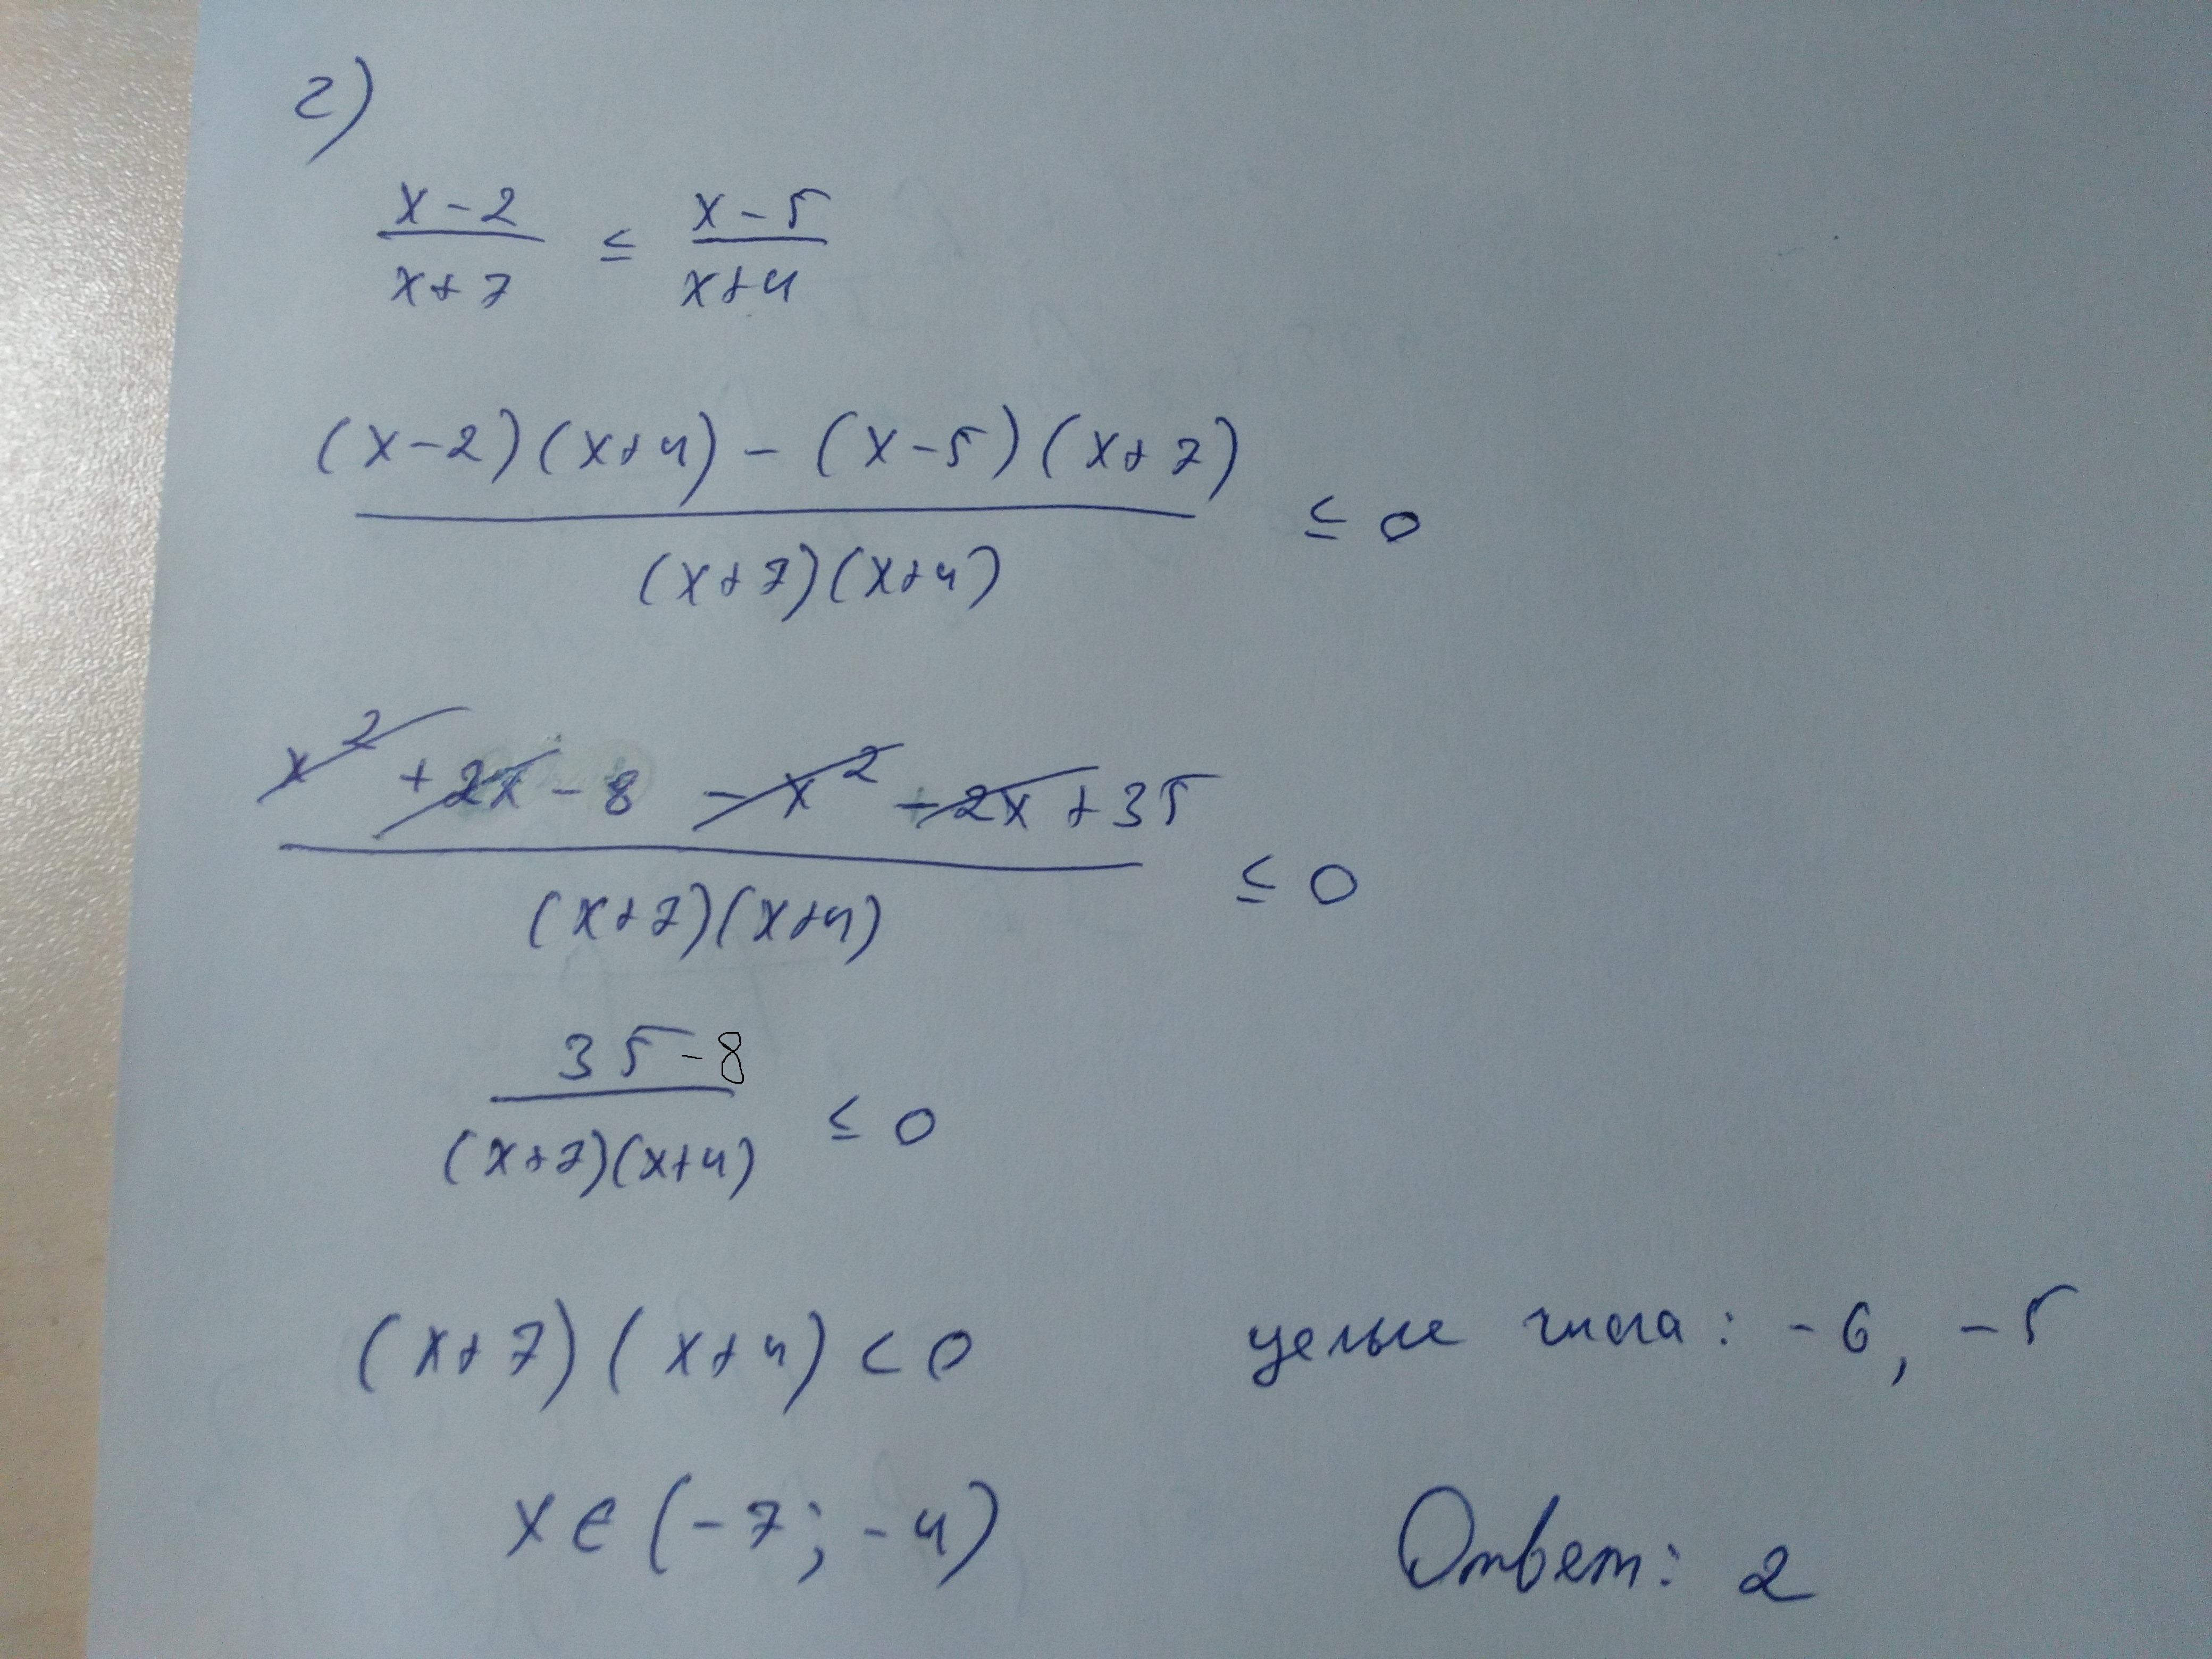 г)
x-2 / x+7 ≤ x-5 / x+4
(x-2)(x+4) - (x-5)(x+7) / (x+7)(x+4) ≤ 0
x² + 2x - 8 - x² - 2x + 35 / (x+7)(x+4) ≤ 0
35-8 / (x+7)(x+4) ≤ 0
(x+7)(x+4) < 0
целые числа: -6, -5
x ∈ (-7; -4)
Ответ: 2